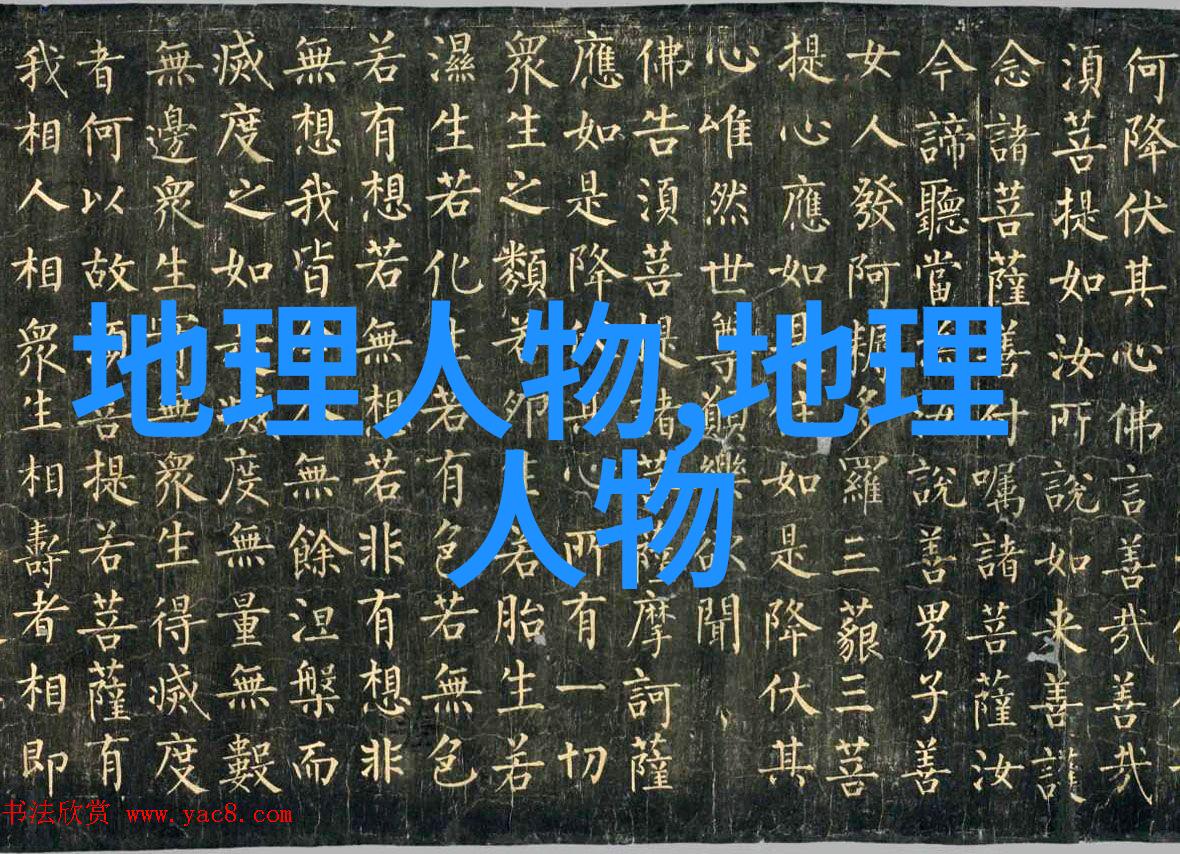 何降伏其心佛言善哉善哉
湏菩提如汝所說如来善護
念諸菩薩善付嘱諸菩薩汝
今諦聽當為汝說善男子善
女人發阿耨多羅三藐三菩
提心應如是住如是降伏其
心唯然世尊願樂欲聞
佛告湏菩提諸菩薩摩訶薩
應如是降伏其心所有一切
衆生之類若卵生若胎生若
濕生若化生若有色若無色
若有想若無想若非有想非
無想我皆令入無餘涅槃而
滅度之如是滅度無量無數
無邊衆生實無衆生得滅度
者何以故湏菩提若菩薩有
我相人相衆生相壽者相即
地理人物,地理
人物
书法欣赏 www.yac8.com